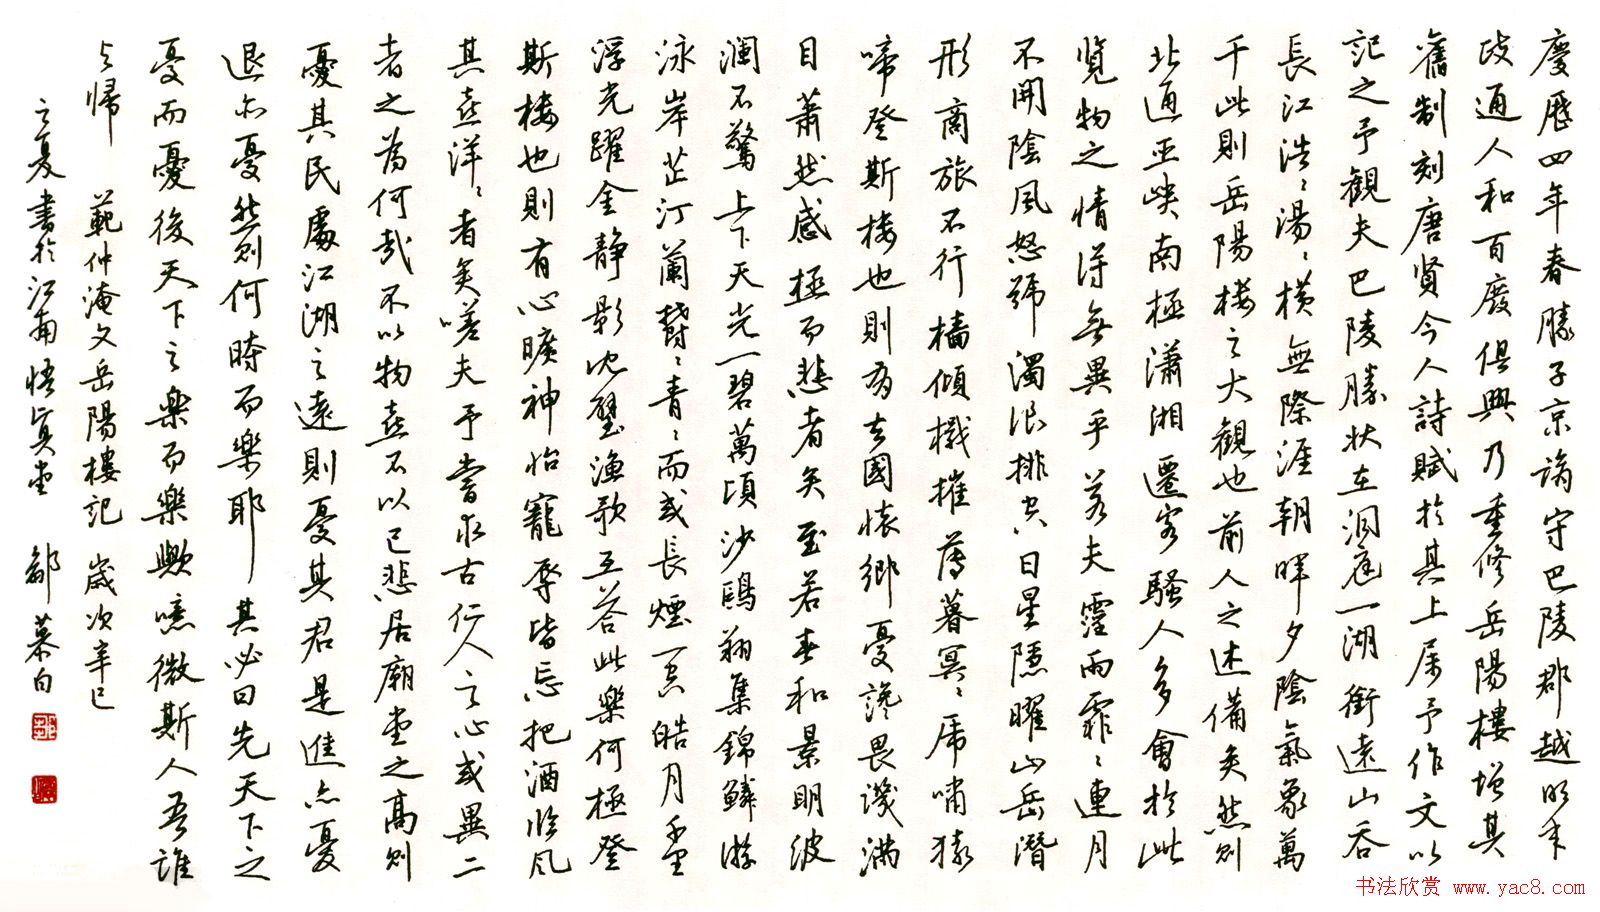 慶歷四年春滕子京謫守巴陵郡越明年
政通人和百廢俱興乃重修岳陽樓增其
舊制刻唐賢今人詩賦於其上屬予作文以
記之予觀夫巴陵勝狀在洞庭一湖銜遠山吞
長江浩〻湯〻橫無際涯朝暉夕陰氣象萬
千此則岳陽樓之大觀也前人之述備矣然則
北通巫峽南極瀟湘遷客騷人多會於此
覽物之情得無異乎若夫霪雨霏〻連月
不開陰風怒號濁浪排空日星隱曜山岳潛
形商旅不行檣傾檝摧薄暮冥〻虎嘯猿
啼登斯樓也則有去國懷鄉憂讒畏譏滿
目蕭然感極而悲者矣至若春和景明波
瀾不驚上下天光一碧萬頃沙鷗翔集錦鱗游
泳岸芷汀蘭鬱〻青〻而或長煙一空皓月千里
浮光躍金靜影沈璧漁歌互答此樂何極登
斯樓也則有心曠神怡寵辱皆忘把酒臨風
其喜洋〻者矣嗟夫予嘗求古仁人之心或異二
者之為何哉不以物喜不以己悲居廟堂之高則
憂其民處江湖之遠則憂其君是進亦憂
退亦憂然則何時而樂耶其必曰先天下之
憂而憂後天下之樂而樂歟噫微斯人吾誰
與歸 範仲淹文岳陽樓記 歲次辛巳
之夏書於江南悟真堂 鄒慕白
书法欣赏 www.yac8.com